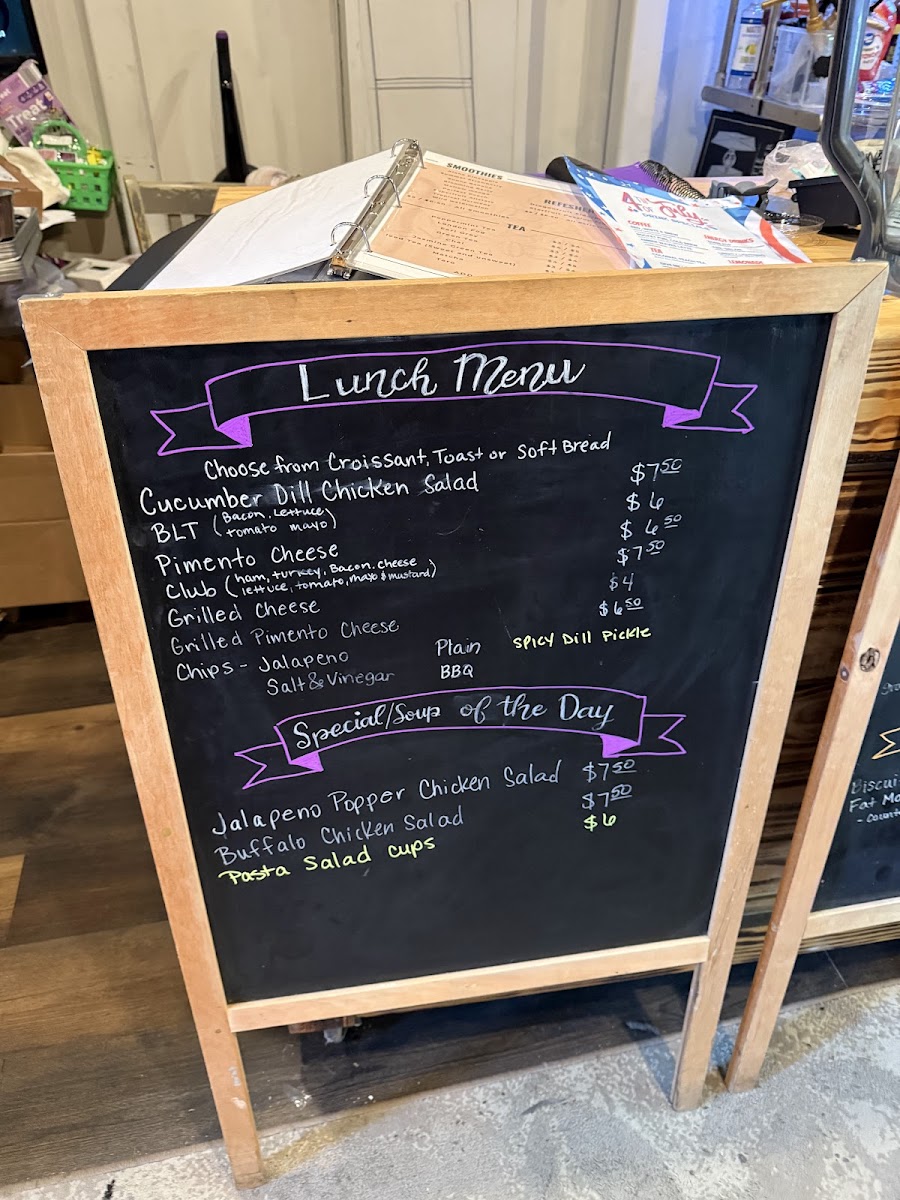 Treat
SMOOTHIES
TEA
4th of July
COFFEE
ENERGY DRINKS
TEA
LEMONADE
Lunch Menu
Choose from Croissant, Toast or Soft Bread
Cucumber Dill Chicken Salad $7.50
BLT (Bacon, Lettuce, tomato mayo) $6
Pimento Cheese $6.50
Club (ham, turkey, Bacon, cheese lettuce, tomato, mayo & mustard) $7.50
Grilled Cheese $4
Grilled Pimento Cheese $6.50
Chips - Jalapeno Plain Spicy Dill Pickle
Salt & Vinegar BBQ
Special/Soup of the Day
Jalapeno Popper Chicken Salad $7.50
Buffalo Chicken Salad $7.50
Pasta Salad Cups $6
Biscui
Fat Mo